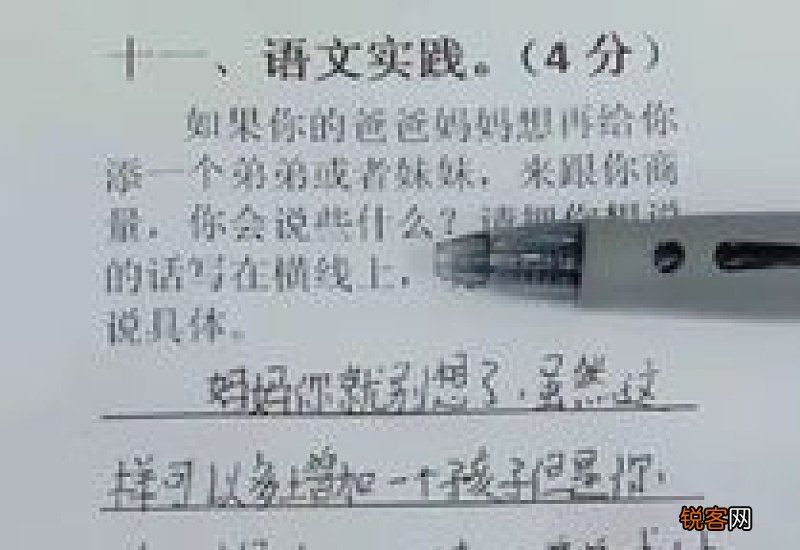 十一、语文实践。(4分)
如果你的爸爸妈妈想再给你
添一个弟弟或者妹妹，来跟你商
量，你会说些什么？请把你想说
的话写在横线上，
说具体。
妈妈你就别想了，虽然这
样可以多增加一个孩子但是你，
锐客网